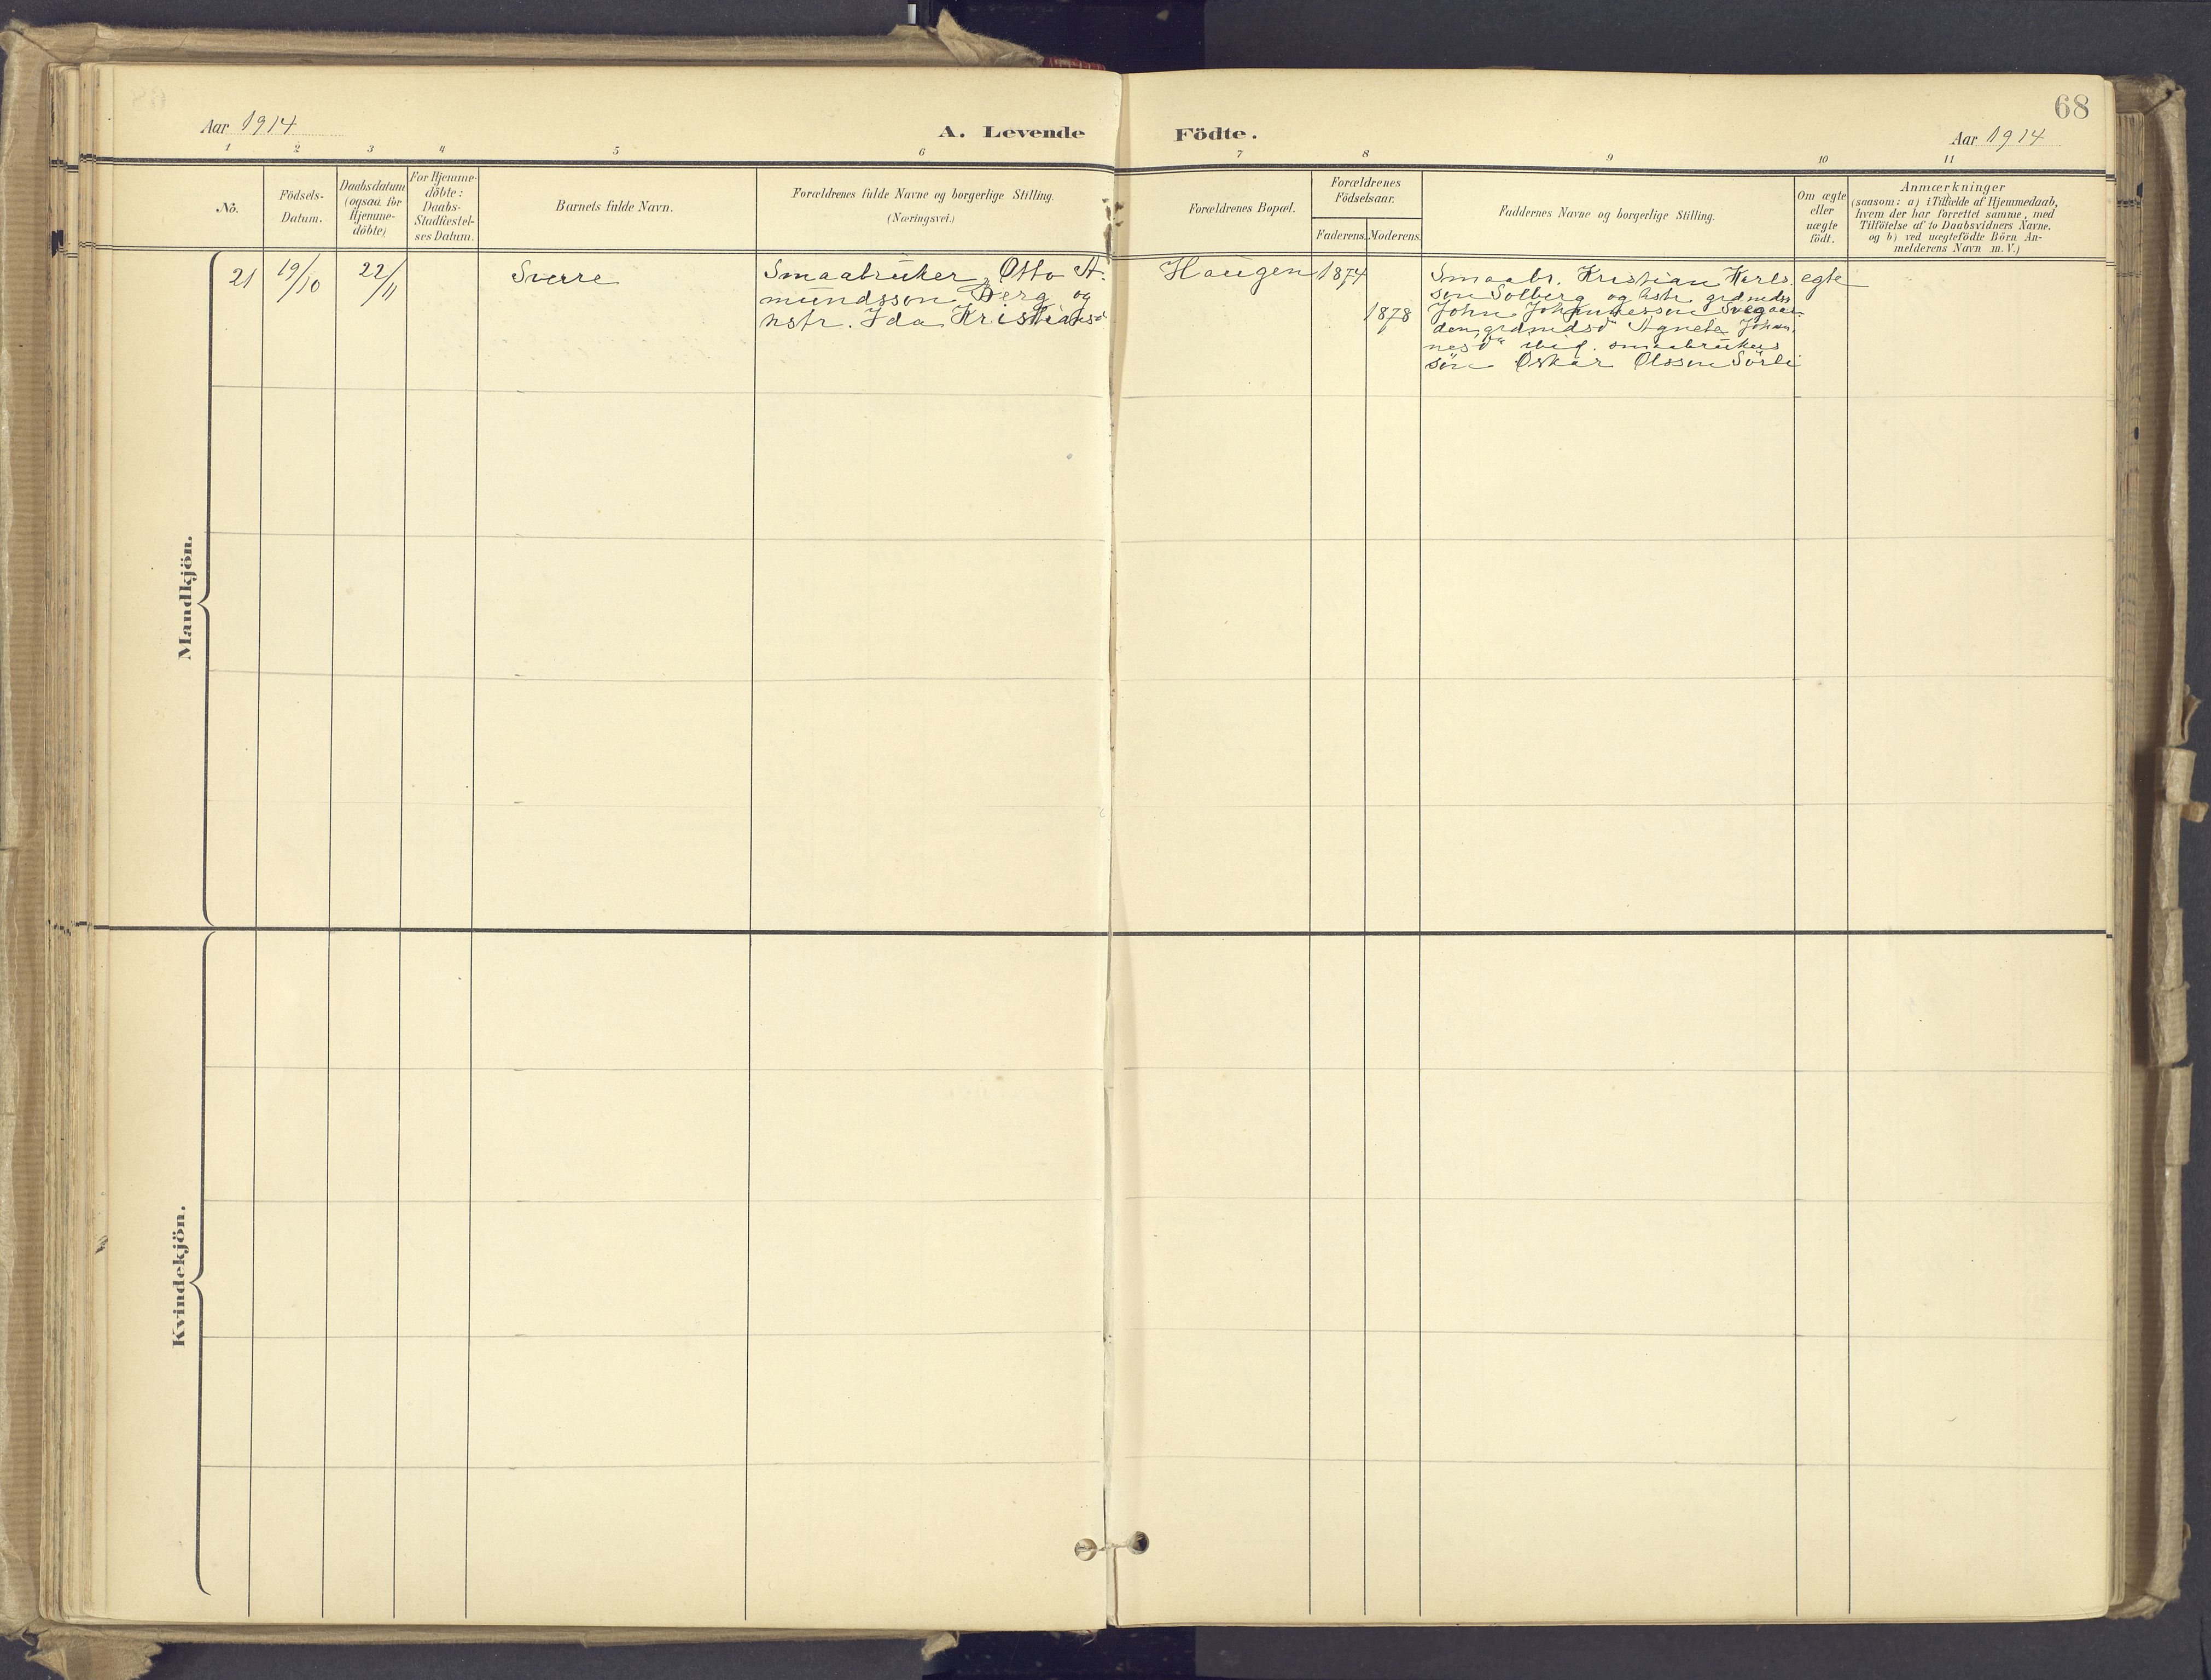 68
Aar 1914
A. Levende Födte.
Aar 1914
1 2 3 4 5 6 7 8 9 10 11
No.
Födsels-
Datum.
Daabsdatum
(ogsaa for
Hjemme-
döbte)
For Hjemme-
döbte:
Daabs-
Stadfæstel-
ses Datum.
Barnets fulde Navn.
Forældrenes fulde Navne og borgerlige Stilling.
(Næringsvei.)
Forældrenes Bopæl.
Forældrenes
Födselsaar.
Faderens. Moderens.
Faddernes Navne og borgerlige Stilling.
Om ægte
eller
uægte
födt.
Anmærkninger
(saasom: a) i Tilfælde af Hjemmedaab,
hvem der har forrettet samme, med
Tilföielse af to Daabsvidners Navne.
og b) ved uægtefödte Börn An-
melderens Navn m. V.)
Mandkjön.
21
19/10
22/11
Sverre
Smaabruker Otto A-
mundsson Berg og
hstr. Ida Kristiansd
Haugen
1874
1878
Smaabr. Kristian Karls
son Solberg og hstr. grdmds
John Johannesson
den, grdmdsd Agnete Johan
nesd ibid. smaabrukers
sön Oskar Olsson Sörli
egte
Kvindekjön.